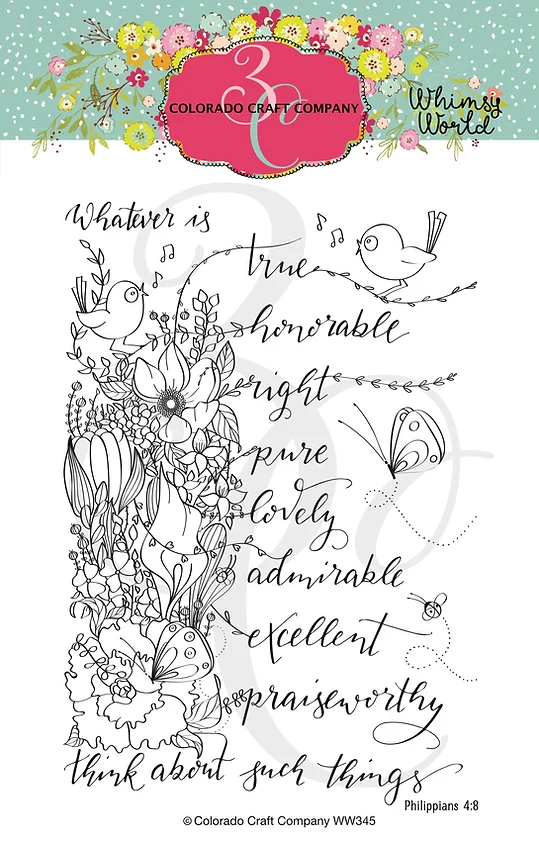 3C
COLORADO CRAFT COMPANY
Whimsy
World
Whatever is
true
honorable
right
pure
lovely
admirable
excellent
praiseworthy
think about such things
Philippians 4:8
© Colorado Craft Company WW345